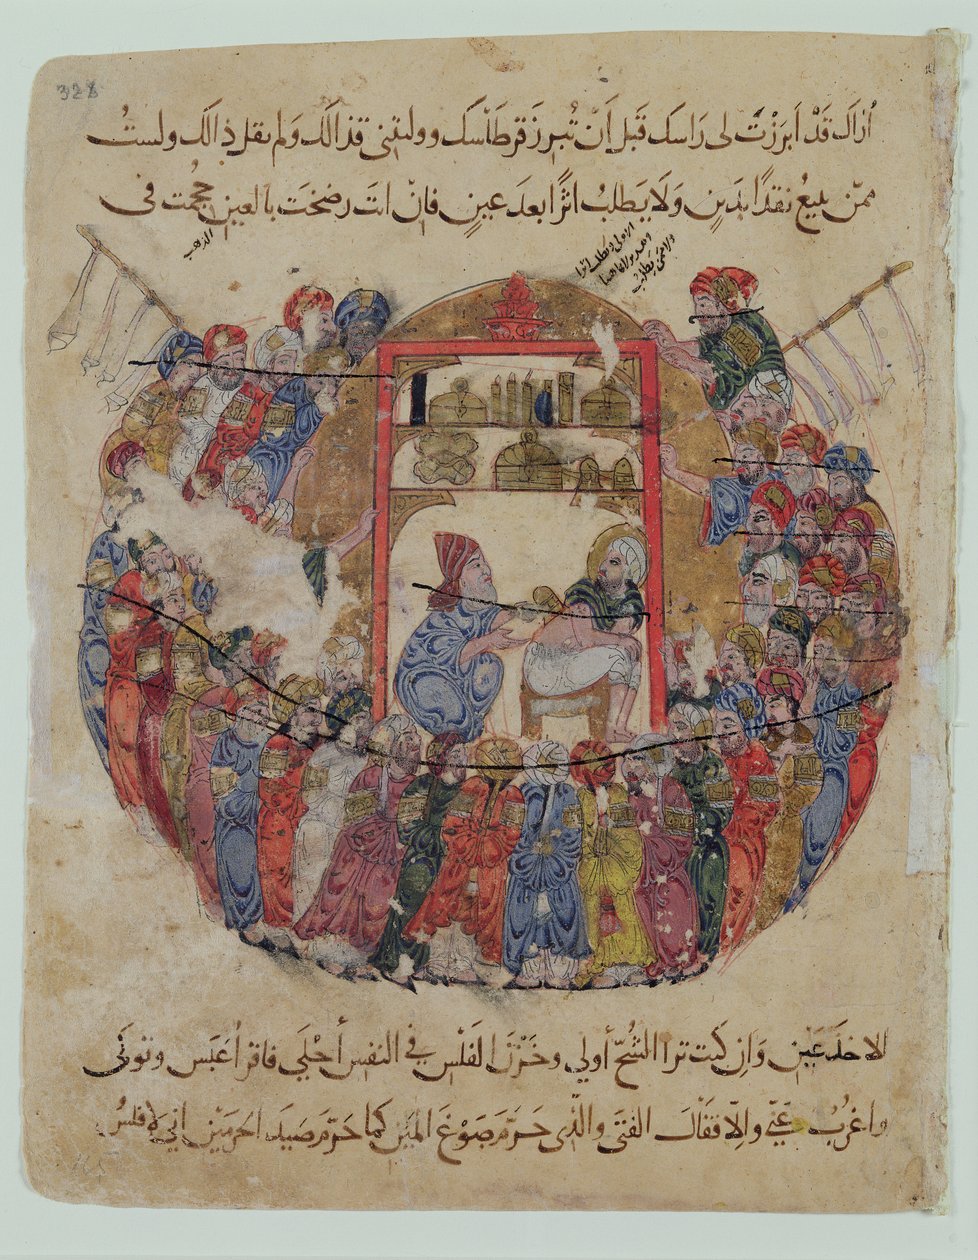 أراك قَدْ اَبرَزْتَ لى رَاسك قَبل اَنْ تُبرِزَ قرطَاسك ووليتنى قذالَك ولم يقل ذالك ولستُ
ممّن يبيعُ نقدًا بدَينٍ وَلَا يَطلبُ اثرًا بعدَ عينٍ فَانْ انتَ رضختَ بالعين حجمت فى
الذهب
الاخدَعَين وَان كنت ترا الشحّ أولي وخَزْنَ الفَلْس في النفس أحْلَي فاقرا عَبَس وتولَى
واغرُبْ عَنّي والّا فقَالَ الفتَى والّذى حَرّمَ صَوْغَ المَيْن كما حَرّمَ صَيدَ الحَرَمَيْن اني لَافلسُ